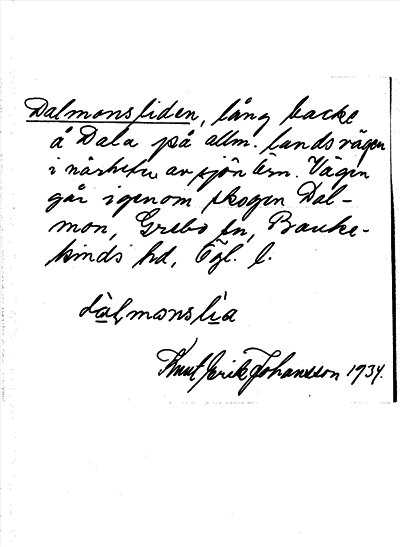 Dalmonsliden, lång backe
å Dala på allm. landsvägen
i närheten av sjön Ärn. Vägen
går igenom skogen Dal-
mon, Grebo sn, Banke-
kinds hd, Ögl. l.
dàlmonslìa
Knut Erik Johansson 1934.